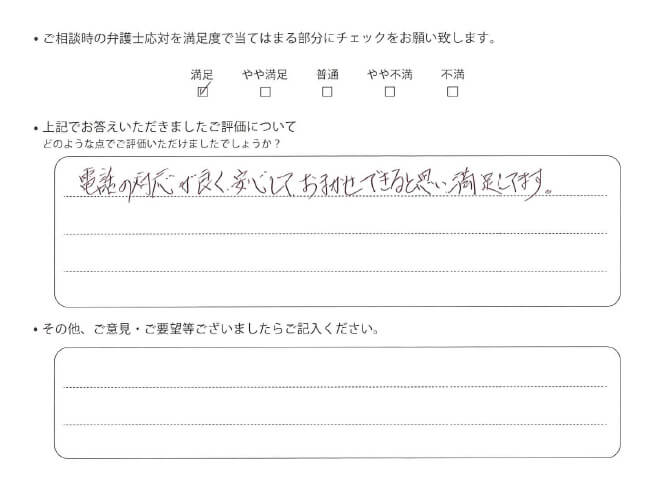 • ご相談時の弁護士応対を満足度で当てはまる部分にチェックをお願い致します。
満足 やや満足 普通 やや不満 不満
☑ ☐ ☐ ☐ ☐
• 上記でお答えいただきましたご評価について
どのような点でご評価いただけましたでしょうか？
電話の対応が良く、安心しておまかせできると思い、満足してます。
• その他、ご意見・ご要望等ございましたらご記入ください。